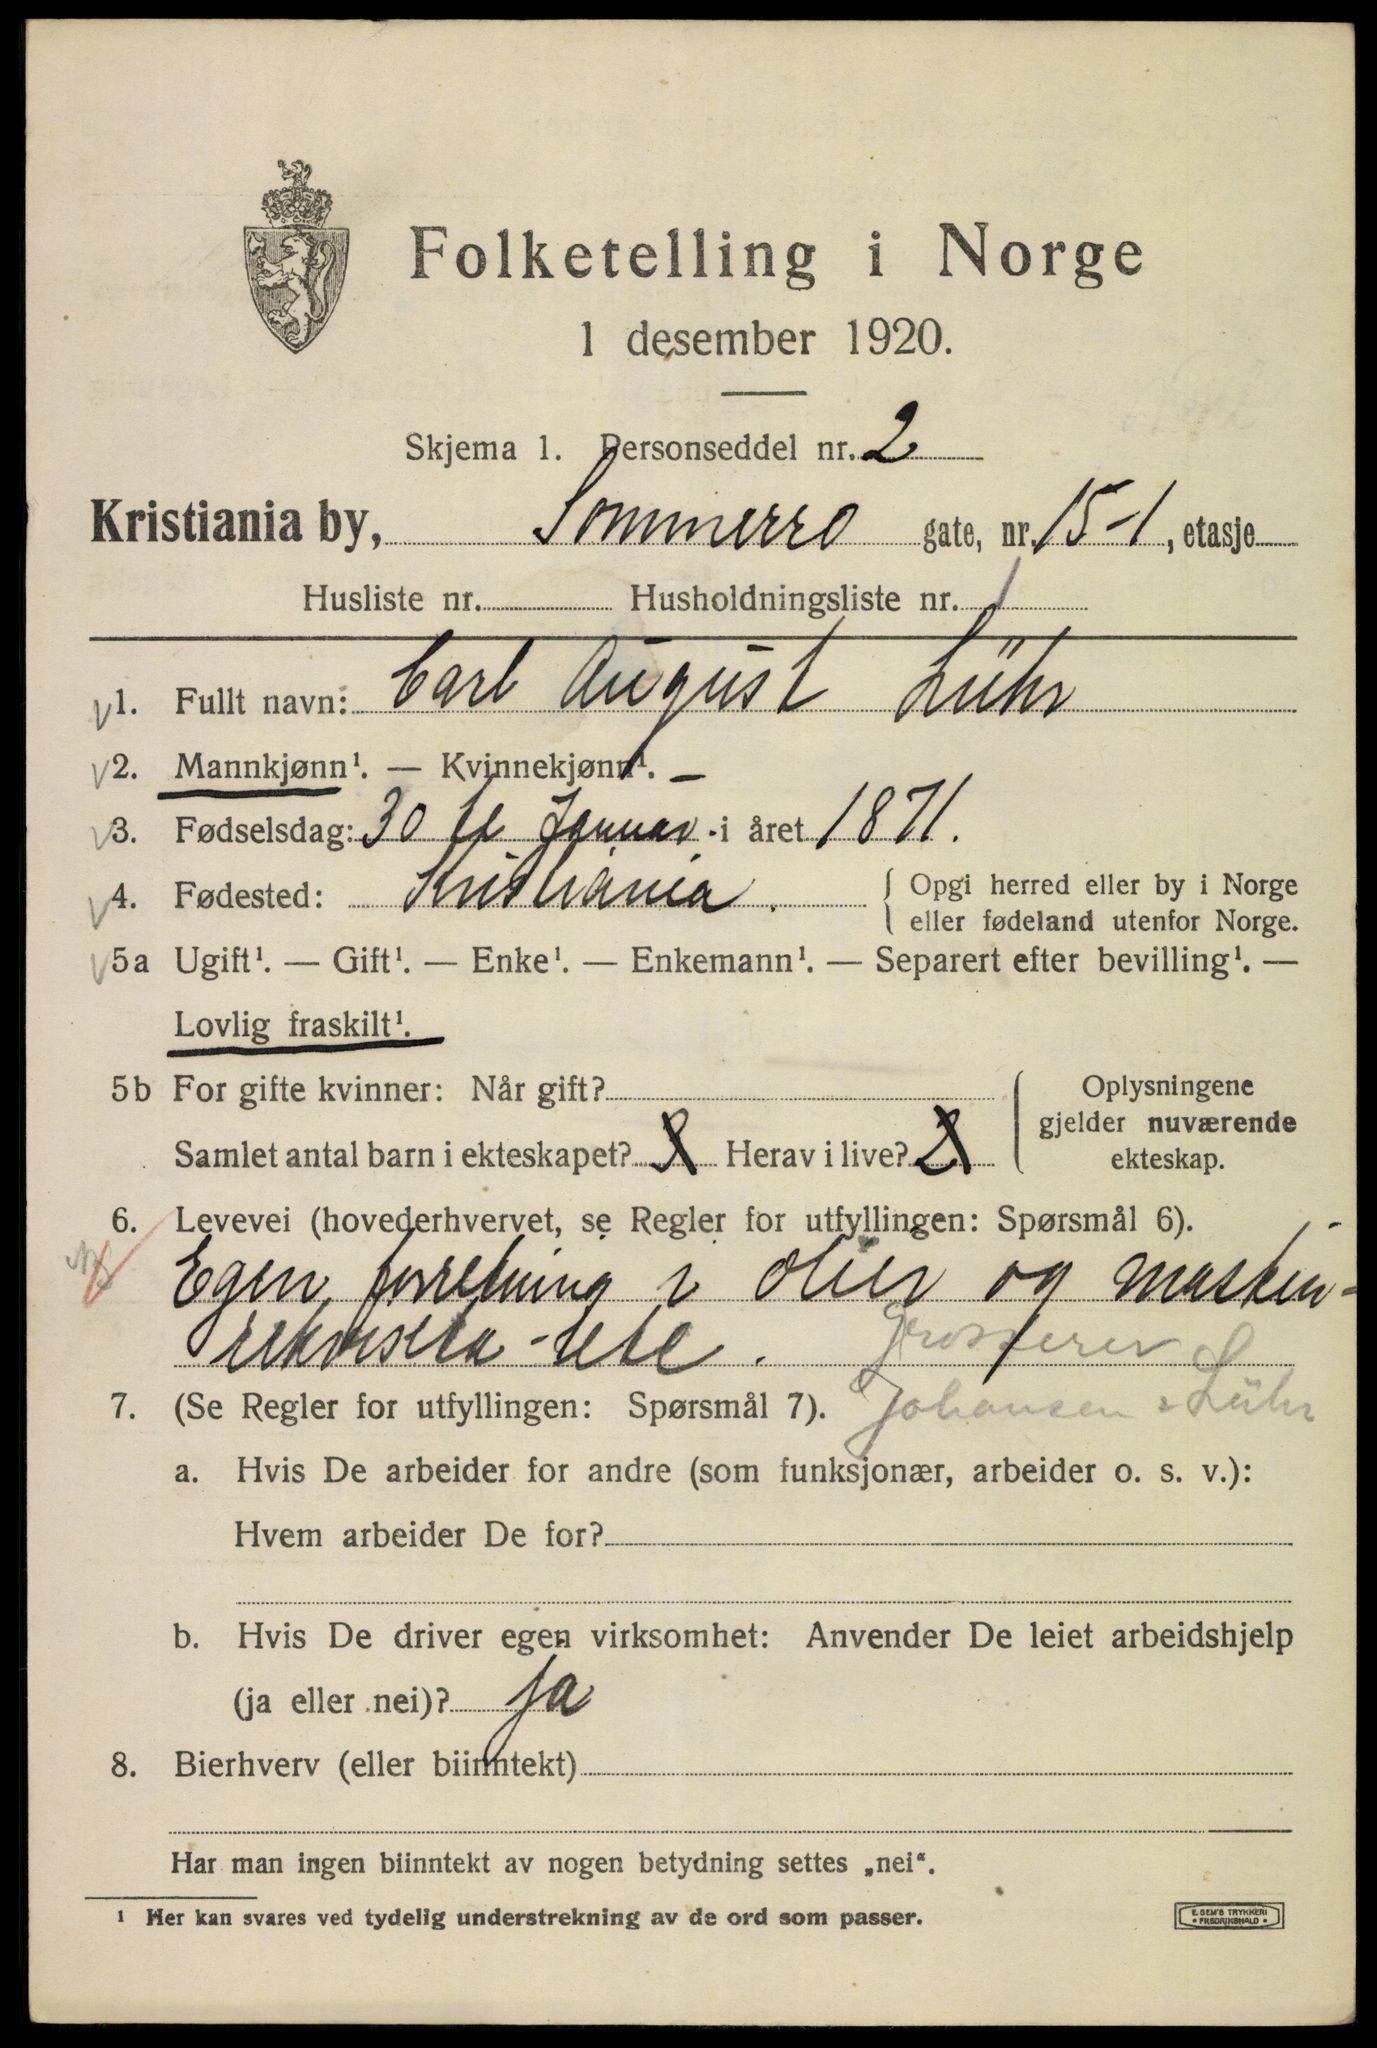 Folketelling i Norge
1 desember 1920.
Skjema 1. Personseddel nr. 2
Kristiania by, Sommerro gate, nr. 15-1, etasje
Husliste nr. Husholdningsliste nr. 1
1. Fullt navn: Carl August Lühr
2. Mannkjønn¹. — Kvinnekjønn¹. —
3. Fødselsdag: 30 te Januar i året 1871.
4. Fødested: Kristiania. { Opgi herred eller by i Norge
eller fødeland utenfor Norge.
5a Ugift¹. — Gift¹. — Enke¹. — Enkemann¹. — Separert efter bevilling¹. —
Lovlig fraskilt¹.
5b For gifte kvinner: Når gift? { Oplysningene
gjelder nuværende
Samlet antal barn i ekteskapet? Herav i live? 2 ekteskap.
6. Levevei (hovederhvervet, se Regler for utfyllingen: Spørsmål 6).
Egen forretning i olier og maskin-
rekvisita - etc. Grosserer
7. (Se Regler for utfyllingen: Spørsmål 7). Johansen & Lühr
a. Hvis De arbeider for andre (som funksjonær, arbeider o. s. v.):
Hvem arbeider De for?
b. Hvis De driver egen virksomhet: Anvender De leiet arbeidshjelp
(ja eller nei)? ja
8. Bierhverv (eller biinntekt)
Har man ingen biinntekt av nogen betydning settes „nei“.
¹ Her kan svares ved tydelig understrekning av de ord som passer.
E. SEM'S TRYKKERI
• FREDRIKSHALD •